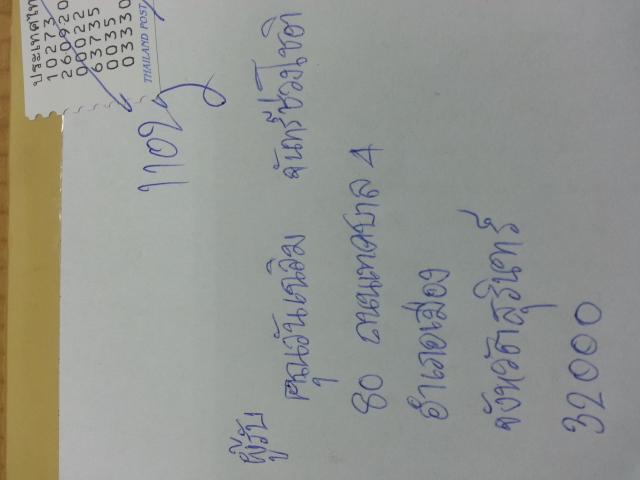 ประเทศไท
10273
260920
00022
63735
0035
03330
THAILAND POST
ผู้รับ
คุณวันเฉลิม จันทร์ช่วงโชติ
80 ถนนเทศบาล 4
อำเภอเมือง
จังหวัดสุรินทร์
32000